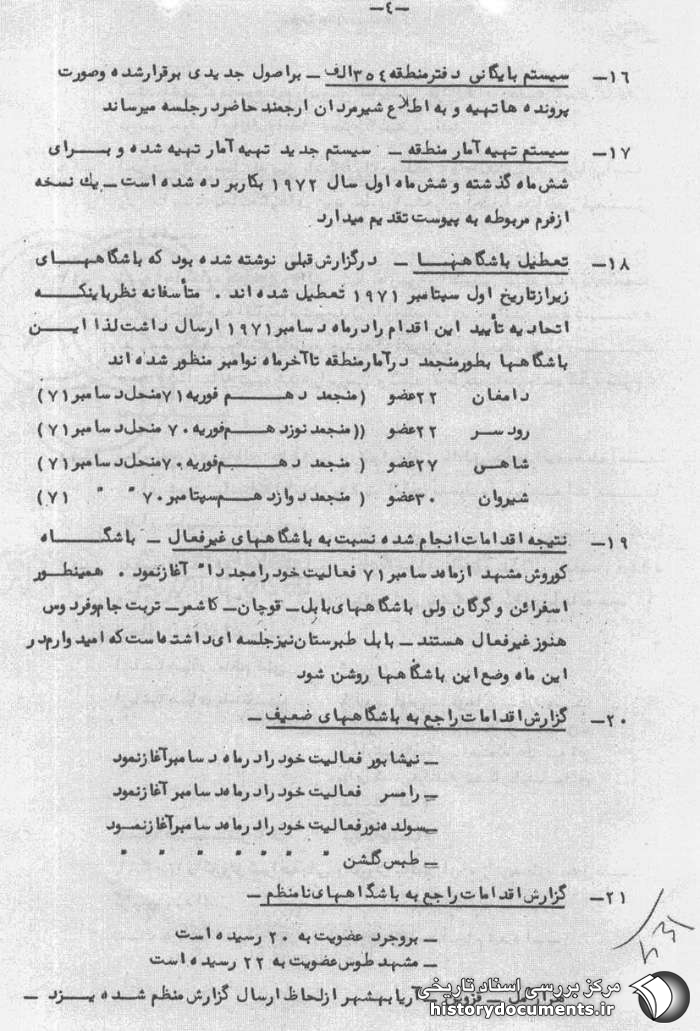 -۴-
۱۶- سیستم بایگانی دفترمنطقه ۳۵۴الف - براصول جدیدی برقرارشده وصورت
پرونده هاتهیه و به اطلاع شیرمردان ارجمند حاضردرجلسه میرساند
۱۷- سیستم تهیه آمار منطقه - سیستم جدید تهیه آمار تهیه شده و برای
شش ماه گذشته و شش ماه اول سال ۱۹۷۲ بکاربرده شده است - یك نسخه
ازفرم مربوطه به پیوست تقدیم میدارد
۱۸- تعطیل باشگاهها - درگزارش قبلی نوشته شده بود که باشگاههای
زیرازتاریخ اول سپتامبر ۱۹۷۱ تعطیل شده اند . متأسفانه نظرباینکه
اتحادیه تأیید این اقدام رادرماه دسامبر ۱۹۷۱ ارسال داشت لذا این
باشگاهها بطورمنجمد درآمارمنطقه تاآخرماه نوامبر منظور شده اند
دامغان ۲۲عضو (منجمد دهم فوریه ۷۱ منحل دسامبر ۷۱)
رودسر ۲۲عضو ((منجمد نوزدهم فوریه ۷۰ منحل دسامبر ۷۱)
شاهی ۲۷عضو ( منجمد دهم فوریه ۷۰ منحل دسامبر ۷۱)
شیروان ۳۰عضو ( منجمد دوازدهم سپتامبر ۷۰ " " ۷۱)
۱۹- نتیجه اقدامات انجام شده نسبت به باشگاههای غیرفعال - باشگاه
کوروش مشهد ازماه دسامبر ۷۱ فعالیت خود رامجدداً آغازنمود . همینطور
اسفرائن و گرگان ولی باشگاههای بابل - قوچان - کاشمر - تربت جام وفردوس
هنوز غیرفعال هستند - بابل طبرستان نیزجلسه ای داشته است که امیدوارم در
این ماه وضع این باشگاهها روشن شود
۲۰- گزارش اقدامات راجع به باشگاههای ضعیف -
- نیشابور فعالیت خود رادرماه دسامبرآغازنمود
- رامسر فعالیت خود رادرماه دسامبر آغازنمود
- سولده نور فعالیت خود رادرماه دسامبرآغازنمود
- طبس گلشن " " " " " " "
۲۱- گزارش اقدامات راجع به باشگاههای نامنظم -
- بروجرد عضویت به ۲۰ رسیده است
- مشهد طوس عضویت به ۲۲ رسیده است
قزوین آریابهشهر ازلحاظ ارسال گزارش منظم شده یزد -
مرکز بررسی اسناد تاریخی
historydocuments.ir